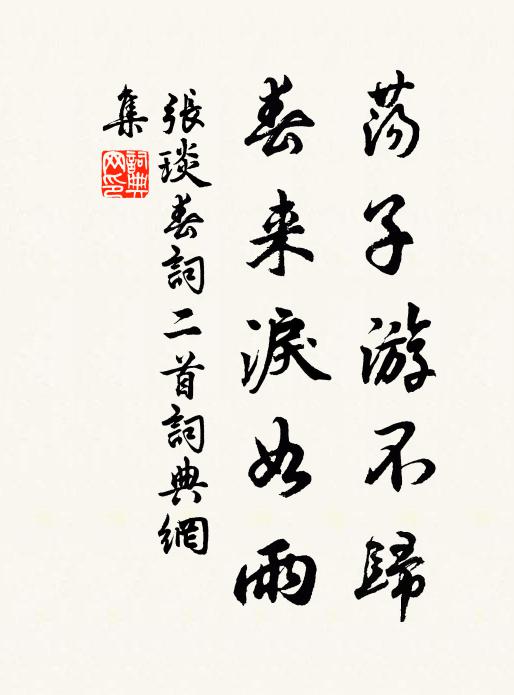 荡子游不歸
春来淚如雨
張琰春詞二首詞典網
集
詞典网印